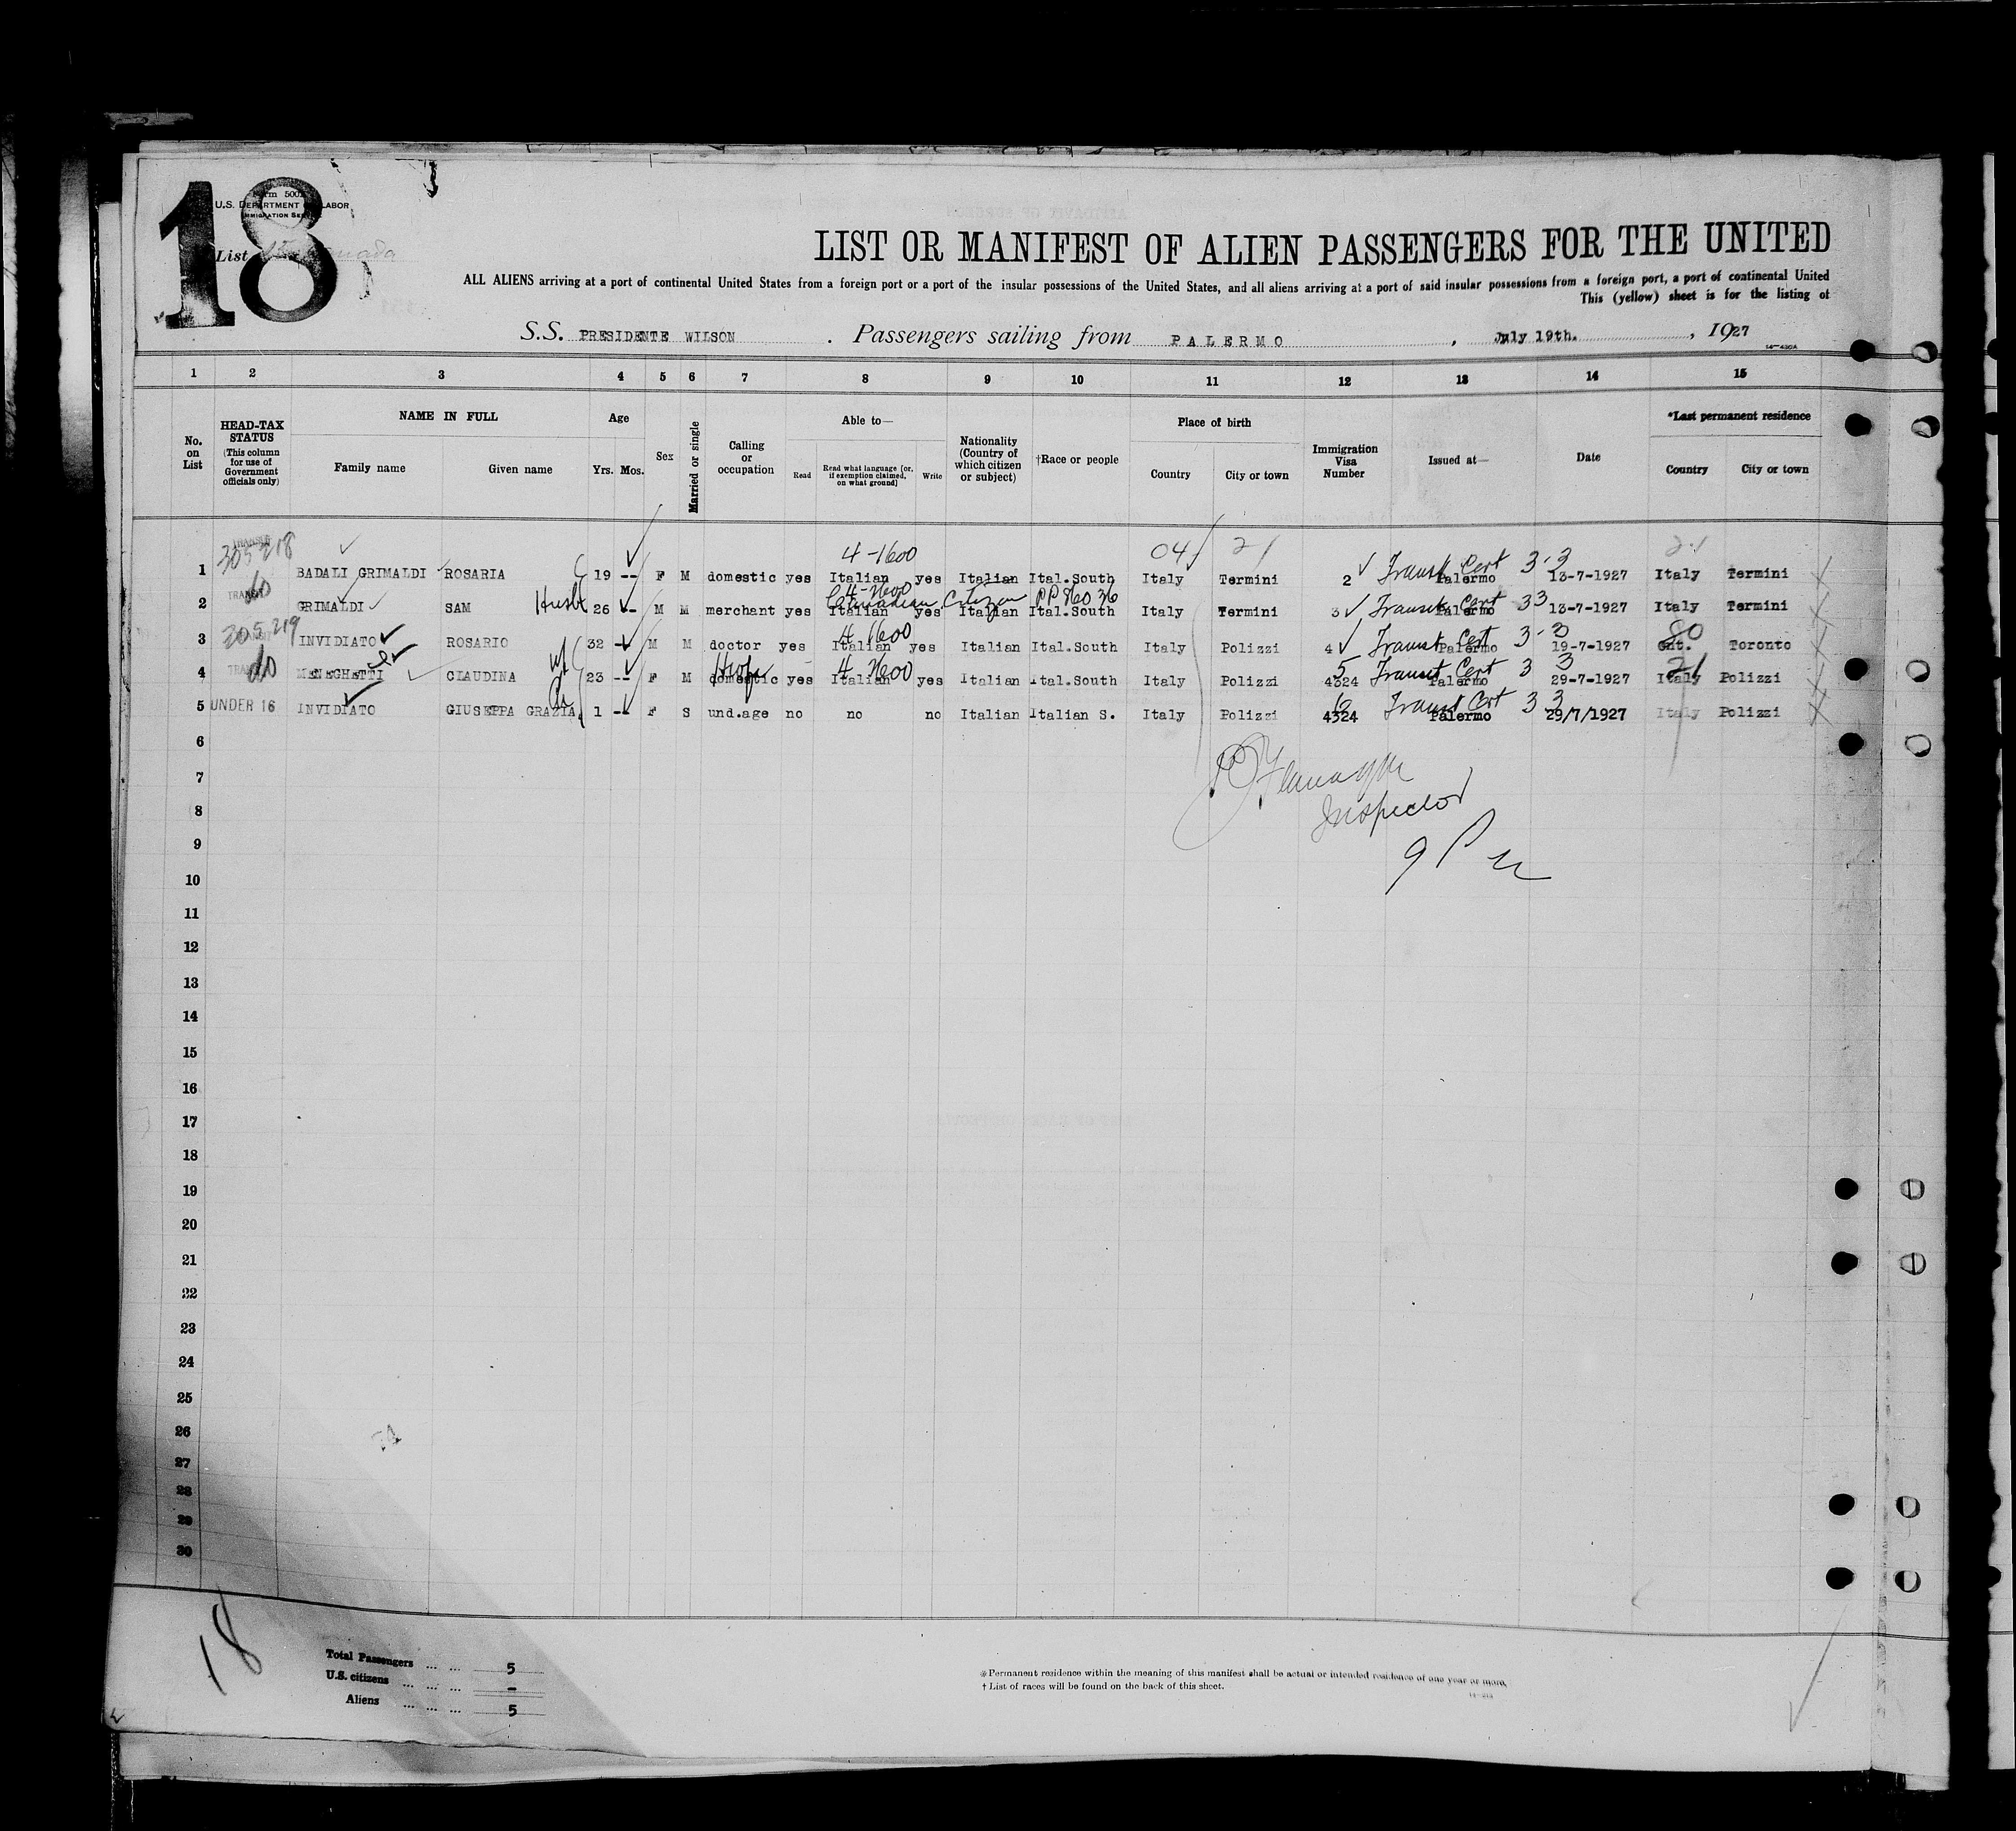 18
Form 500
U.S. DEPARTMENT OF LABOR
IMMIGRATION SERVICE
List
LIST OR MANIFEST OF ALIEN PASSENGERS FOR THE UNITED
ALL ALIENS arriving at a port of continental United States from a foreign port or a port of the insular possessions of the United States, and all aliens arriving at a port of said insular possessions from a foreign port, a port of continental United
This (yellow) sheet is for the listing of
S.S. PRESIDENTE WILSON . Passengers sailing from PALERMO , July 19th. , 1927
1 2 3 4 5 6 7 8 9 10 11 12 13 14 15
No. on List
HEAD-TAX STATUS (This column for use of Government officials only)
NAME IN FULL
Family name Given name
Age
Yrs. Mos.
Sex
Married or single
Calling or occupation
Able to—
Read
Read what language [or, if exemption claimed, on what ground]
Write
Nationality (Country of which citizen or subject)
†Race or people
Place of birth
Country City or town
Immigration Visa Number
Issued at—
Date
*Last permanent residence
Country City or town
305218 4-1600 04 21 21
1 TRANSIT BADALI GRIMALDI ROSARIA 19 -- F M domestic yes Italian yes Italian Ital.South Italy Termini 2 Transit Cert 3-3 Palermo 13-7-1927 Italy Termini
4-1600 Canadian Citizen PP 86036
2 TRANSIT do GRIMALDI SAM Husb 26 -- M M merchant yes Italian yes Italian Ital.South Italy Termini 3 Transit Cert 33 Palermo 13-7-1927 Italy Termini
305219 4 1600 80
3 INVIDIATO ROSARIO 32 -- M M doctor yes Italian yes Italian Ital.South Italy Polizzi 4 Transit Cert 3-3 Palermo 19-7-1927 Ont. Toronto
Hwife 4 1600 5 21
4 TRANSIT do MENEGHETTI CLAUDINA wf 23 -- F M domestic yes Italian yes Italian Ital.South Italy Polizzi 4324 Transit Cert 3 3 Palermo 29-7-1927 Italy Polizzi
5 UNDER 16 INVIDIATO GIUSEPPA GRAZIA 1 -- F S und.age no no no Italian Italian S. Italy Polizzi 4324 6 Transit Cert 3 3 Palermo 29/7/1927 Italy Polizzi
6
7
Flanagan
8
Inspector
9
10
11
12
13
14
15
16
17
18
19
20
21
22
23
24
25
26
27
28
29
30
18
Total Passengers ... ... 5
U.S. citizens ... ... ... –
Aliens ... ... ... 5
*Permanent residence within the meaning of this manifest shall be actual or intended residence of one year or more.
† List of races will be found on the back of this sheet.